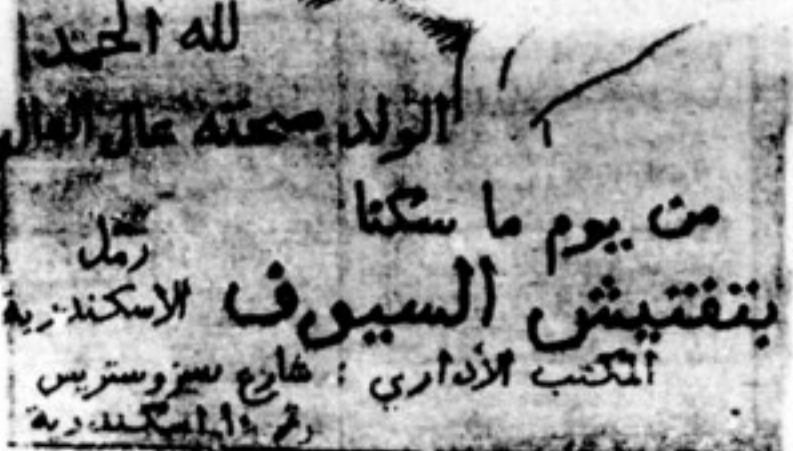 لله الحمد
الولد صحته عال العال
من يوم ما سكنا
بتفتيش السيوف
رمل
الاسكندرية
المكتب الأداري : شارع سيزوستريس
رقم ١٠ اسكندرية